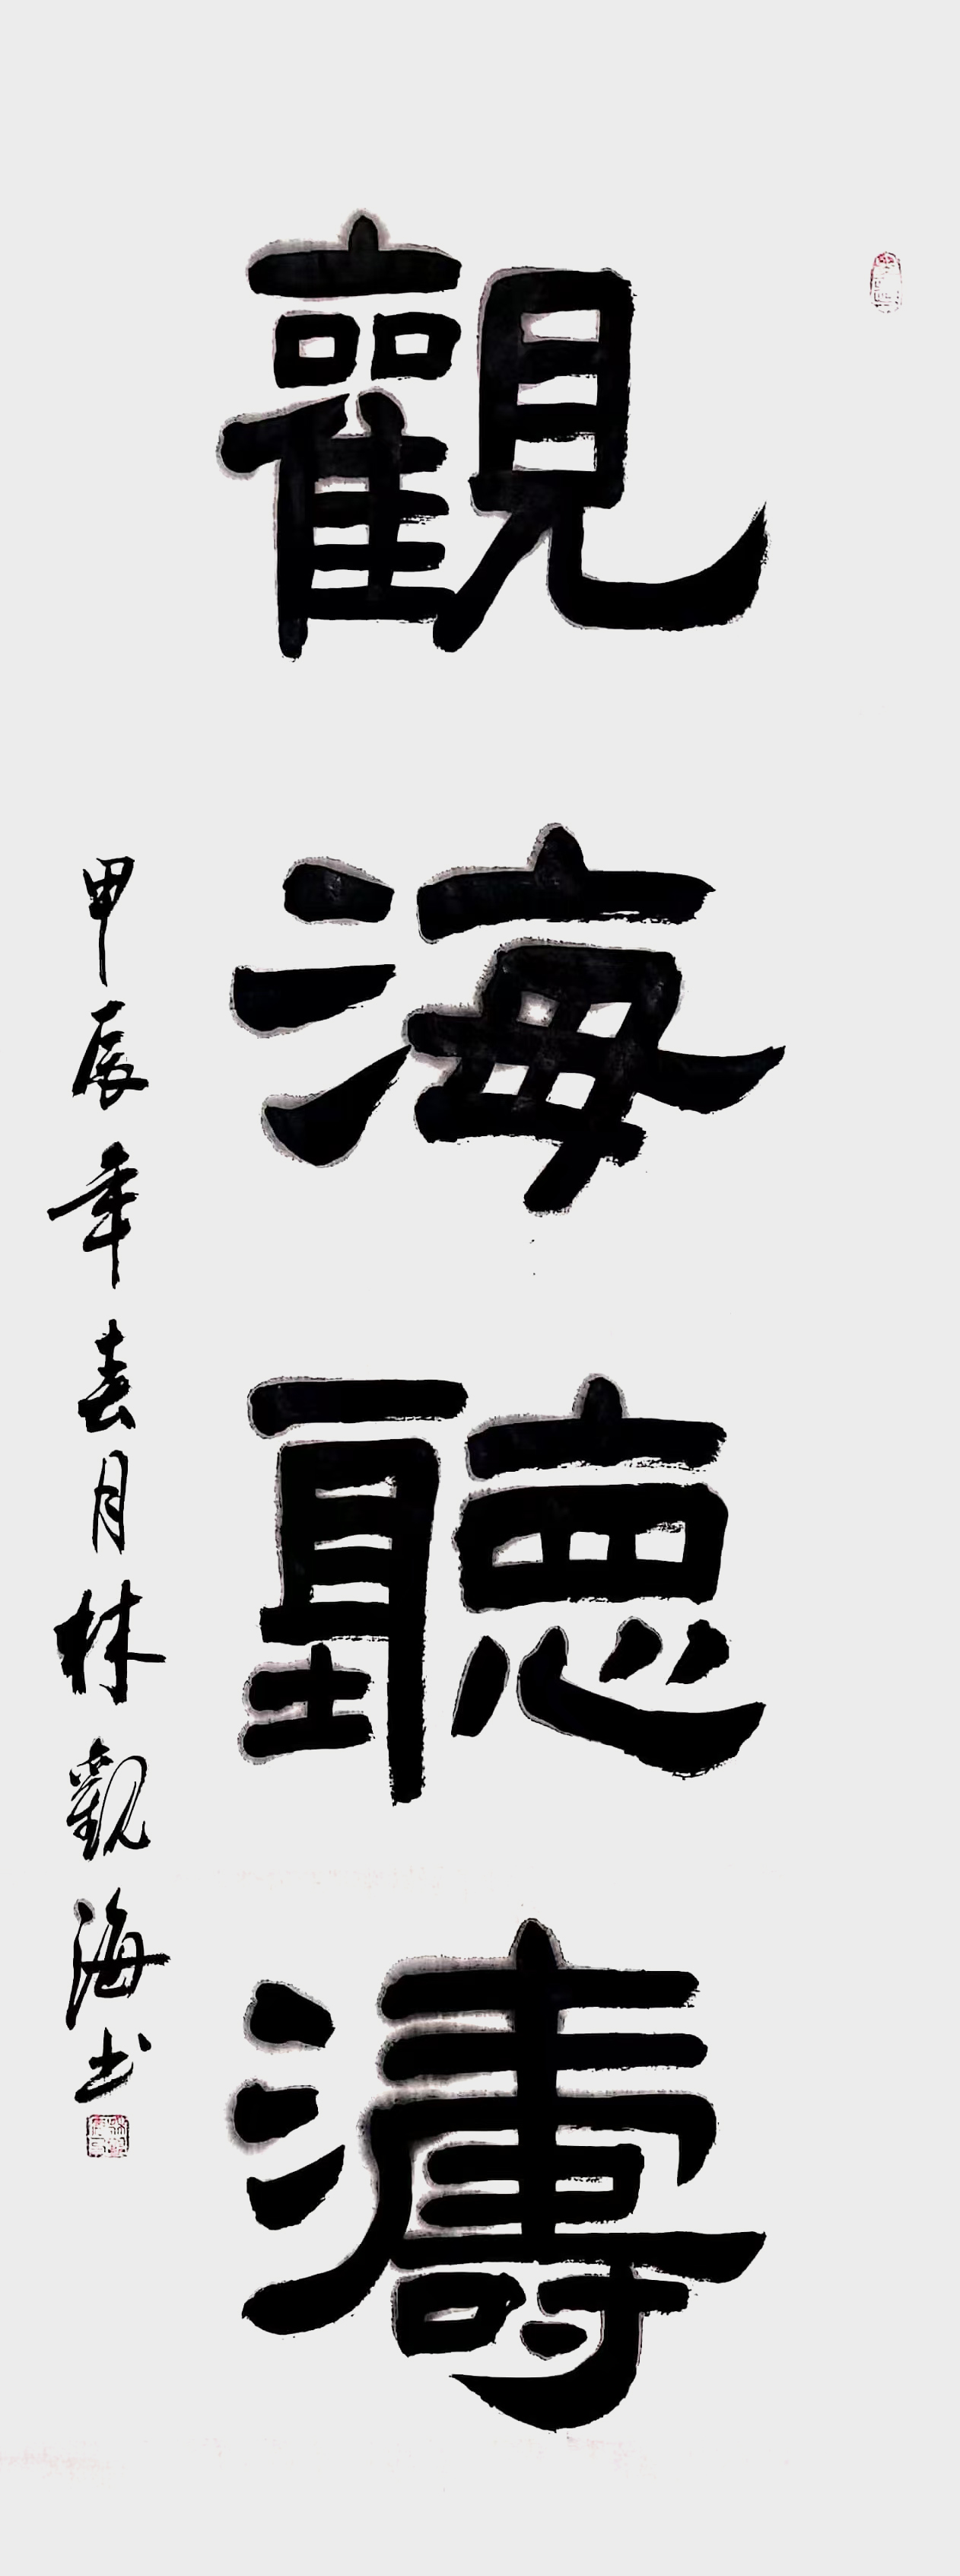 觀海聽濤
甲辰年春月林觀海书